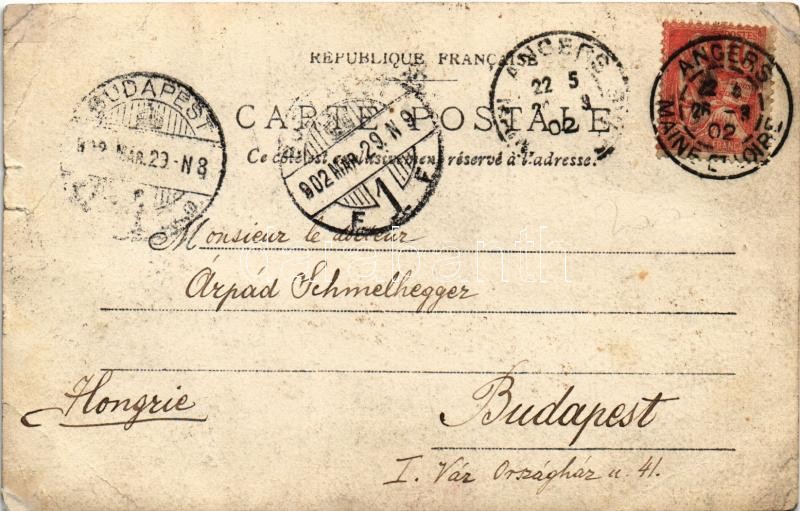 RÉPUBLIQUE FRANÇAISE
CARTE POSTALE
Ce côté est exclusivement réservé à l'adresse.
BUDAPEST
902 MAR. 29 - N 8
902 MAR. 29. N 9
1
F F
ANGERS
22 5
02
POSTES
ANGERS
MAINE-ET-LOIRE
02
Monsieur le docteur
Árpád Schmelhegger
Hongrie
Budapest
I. Vár Országház u. 41.